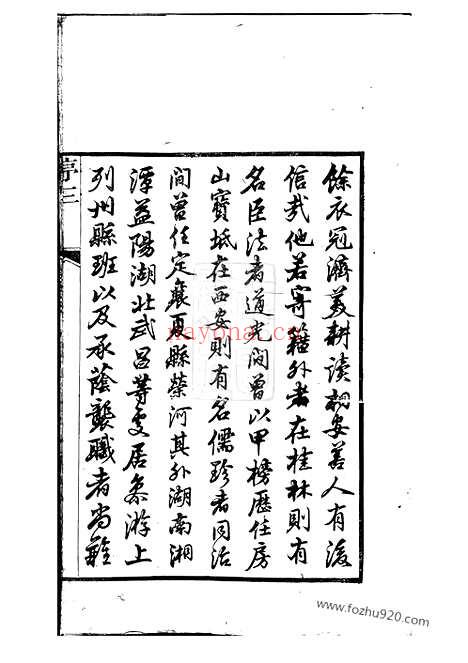 餘衣冠濟美耕讀相安善人有後
信哉他若寄籍外者在桂林則有
名臣法者道光間曾以甲榜歷任房
山寶坻在西安則有名儒珍者同治
間曾任定襄兩縣榮河其外湖南湘
潭益陽湖北武昌等處居多游上
列州縣班以及承蔭襲職者尚難
序三
nayona.cn
www.fozhu920.com